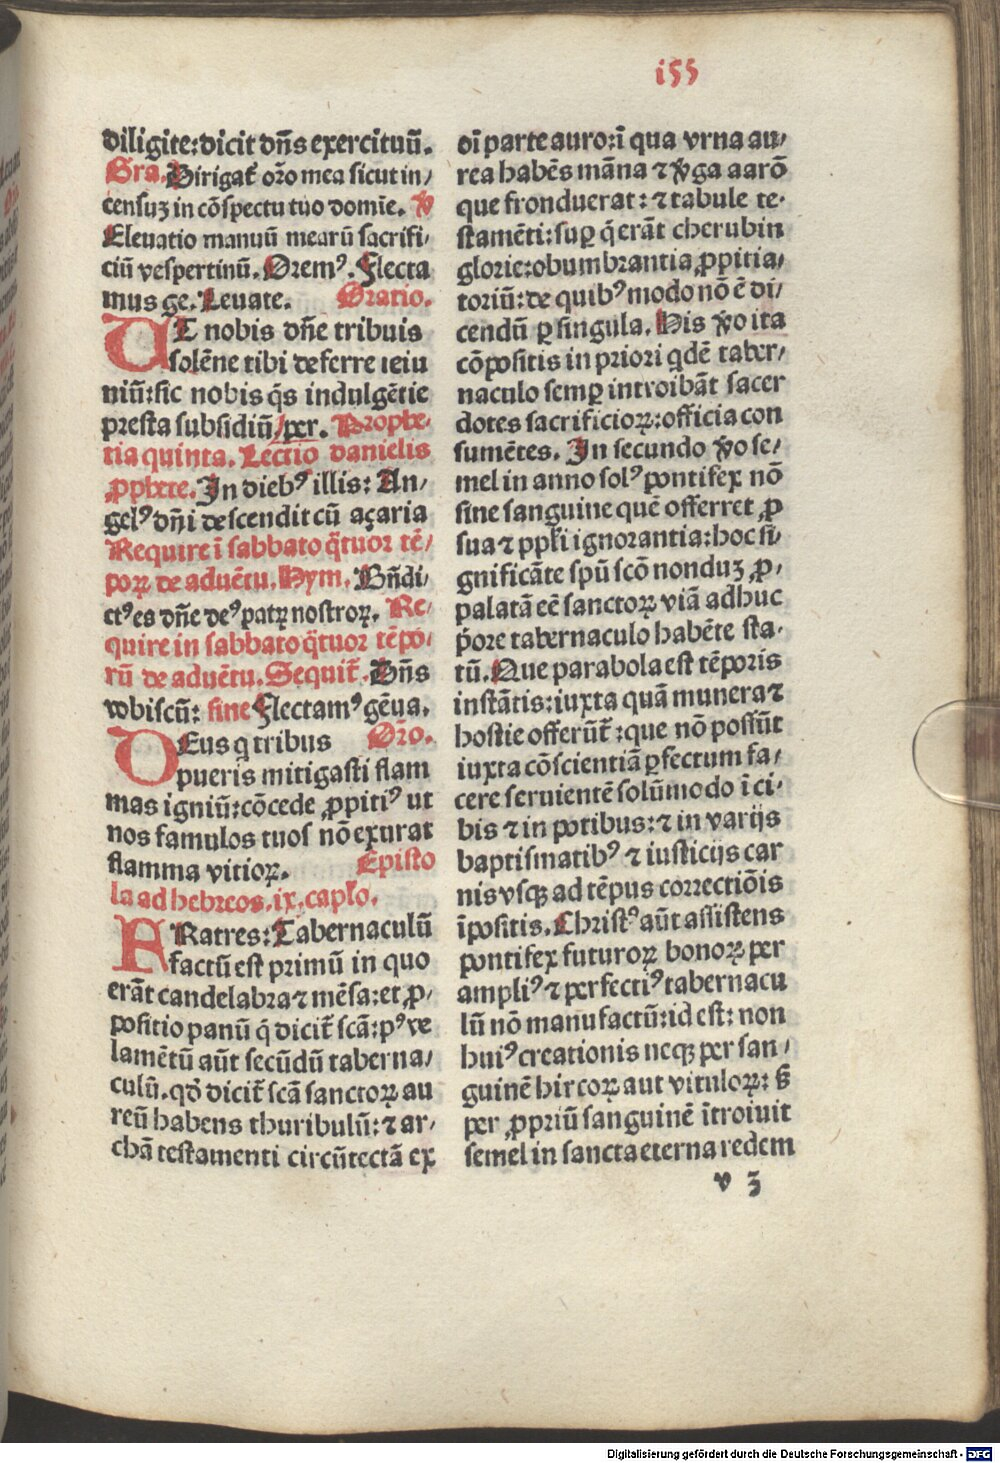 i55
diligite: dicit dn̄s exercituū.
Gra. Dirigat᷑ or̄o mea sicut in/
censuꝫ in cōspectu tuo domīe. ꝟ
Eleuatio manuū mearū sacrifi/
ciū vespertinū. Oremꝰ. Flecta
mus ge. Leuate. Oratio.
UT nobis dn̄e tribuis
solēne tibi deferre ieiu
niū: sic nobis q̄s indulgētie
presta subsidiū / per. Prophe/
tia quinta. Lectio danielis
ꝓphete. In diebꝰ illis: An/
gelꝰ dn̄i descendit cū açaria
Require ī sabbato q̄tuor tē/
poꝝ de aduētu. Hym. Bn̄di/
ctꝰ es dn̄e deꝰ patꝝ nostroꝝ. Re/
quire in sabbato q̄tuor tēpo/
rū de aduētu. Sequit᷑. Dn̄s
vobiscū: sine Flectamꝰ gēua.
DEus q tribus Or̄o.
pueris mitigasti flam
mas igniū: cōcede ꝓpitiꝰ ut
nos famulos tuos nō exurat
flamma vitioꝝ. Episto
la ad hebreos. ix. capl̄o.
FRatres: Tabernaculū
factū est primū in quo
erāt candelabra ⁊ mēsa: et ꝓ/
positio panū q̄ dicit᷑ scā: pꝰ ve
lamētū aūt secūdū taberna/
culū. qd̄ dicit᷑ scā sanctoꝝ au
reū habens thuribulū: ⁊ ar/
chā testamenti circūtectā ex
oī parte auro: ī qua vrna au/
rea habēs māna ⁊ ꝟga aarō
que fronduerat: ⁊ tabule te/
stamēti: suꝑ q̄ erāt cherubin
glorie: obumbrantia ꝓpitia/
toriū: de quibꝰ modo nō ē di/
cendū ꝑ singula. His ꝟo ita
cōpositis in priori qdē taber/
naculo semꝑ introibāt sacer
dotes sacrificioꝝ: officia con
sumētes. In secundo ꝟo se/
mel in anno solꝰ pontifex nō
sine sanguine quē offerret ꝓ
sua ⁊ ppl̄i ignorantia: hoc si/
gnificāte spū scō nonduꝫ ꝓ/
palatā eē sanctoꝝ viā adhuc
p̄ore tabernaculo habēte sta/
tū. Que parabola est tēporis
instātis: iuxta quā munera ⁊
hostie offerūt᷑: que nō possūt
iuxta cōscientiā ꝑfectum fa/
cere seruientē solūmodo ī ci/
bis ⁊ in potibus: ⁊ in varijs
baptismatibꝰ ⁊ iusticijs car
nis vsqꝫ ad tēpus correctiōis
īpositis. Christꝰ aūt assistens
pontifex futuroꝝ bonoꝝ per
ampliꝰ ⁊ perfectiꝰ tabernacu
lū nō manufactū: id est: non
huiꝰ creationis neqꝫ per san/
guinē hircoꝝ aut vituloꝝ: s̄
per ꝓpriū sanguinē ītroiuit
semel in sancta eterna redem
v 3
Digitalisierung gefördert durch die Deutsche Forschungsgemeinschaft - DFG